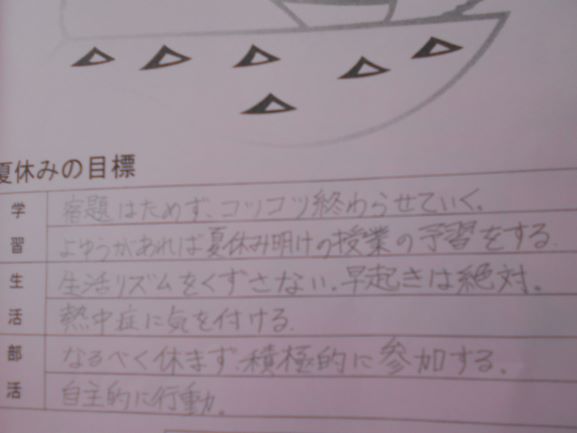 夏休みの目標
学 宿題はためず、コツコツ終わらせていく。
習 よゆうがあれば夏休み明けの授業の予習をする
生 生活リズムをくずさない。早起きは絶対。
活 熱中症に気を付ける。
部 なるべく休まず、積極的に参加する。
活 自主的に行動。